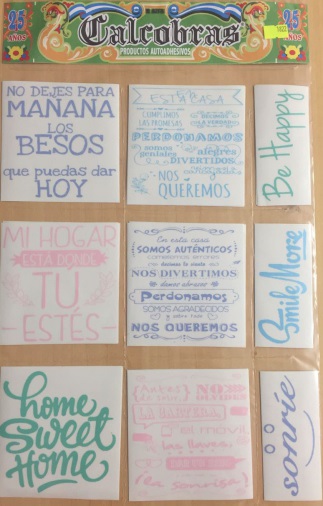 25 AÑOS
Calcobras
PRODUCTOS AUTOADHESIVOS
25 AÑOS
NO DEJES PARA
MAÑANA
LOS
BESOS
que puedas dar
HOY
ESTA CASA
CUMPLIMOS
LAS PROMESAS
DECIMOS
LA VERDAD
PERDONAMOS
somos
geniales
alegres
DIVERTIDOS
NOS
QUEREMOS
Be Happy
MI HOGAR
ESTÁ DONDE
TU
ESTÉS
En esta casa
SOMOS AUTÉNTICOS
cometemos errores
NOS DIVERTIMOS
damos abrazos
Perdonamos
SOMOS AGRADECIDOS
y sobre todo
NOS QUEREMOS
Smile More
home
Sweet
Home
Antes
NO
OLVIDES
EL MÓVIL
Las llaves
La sonrisa!
sonríe